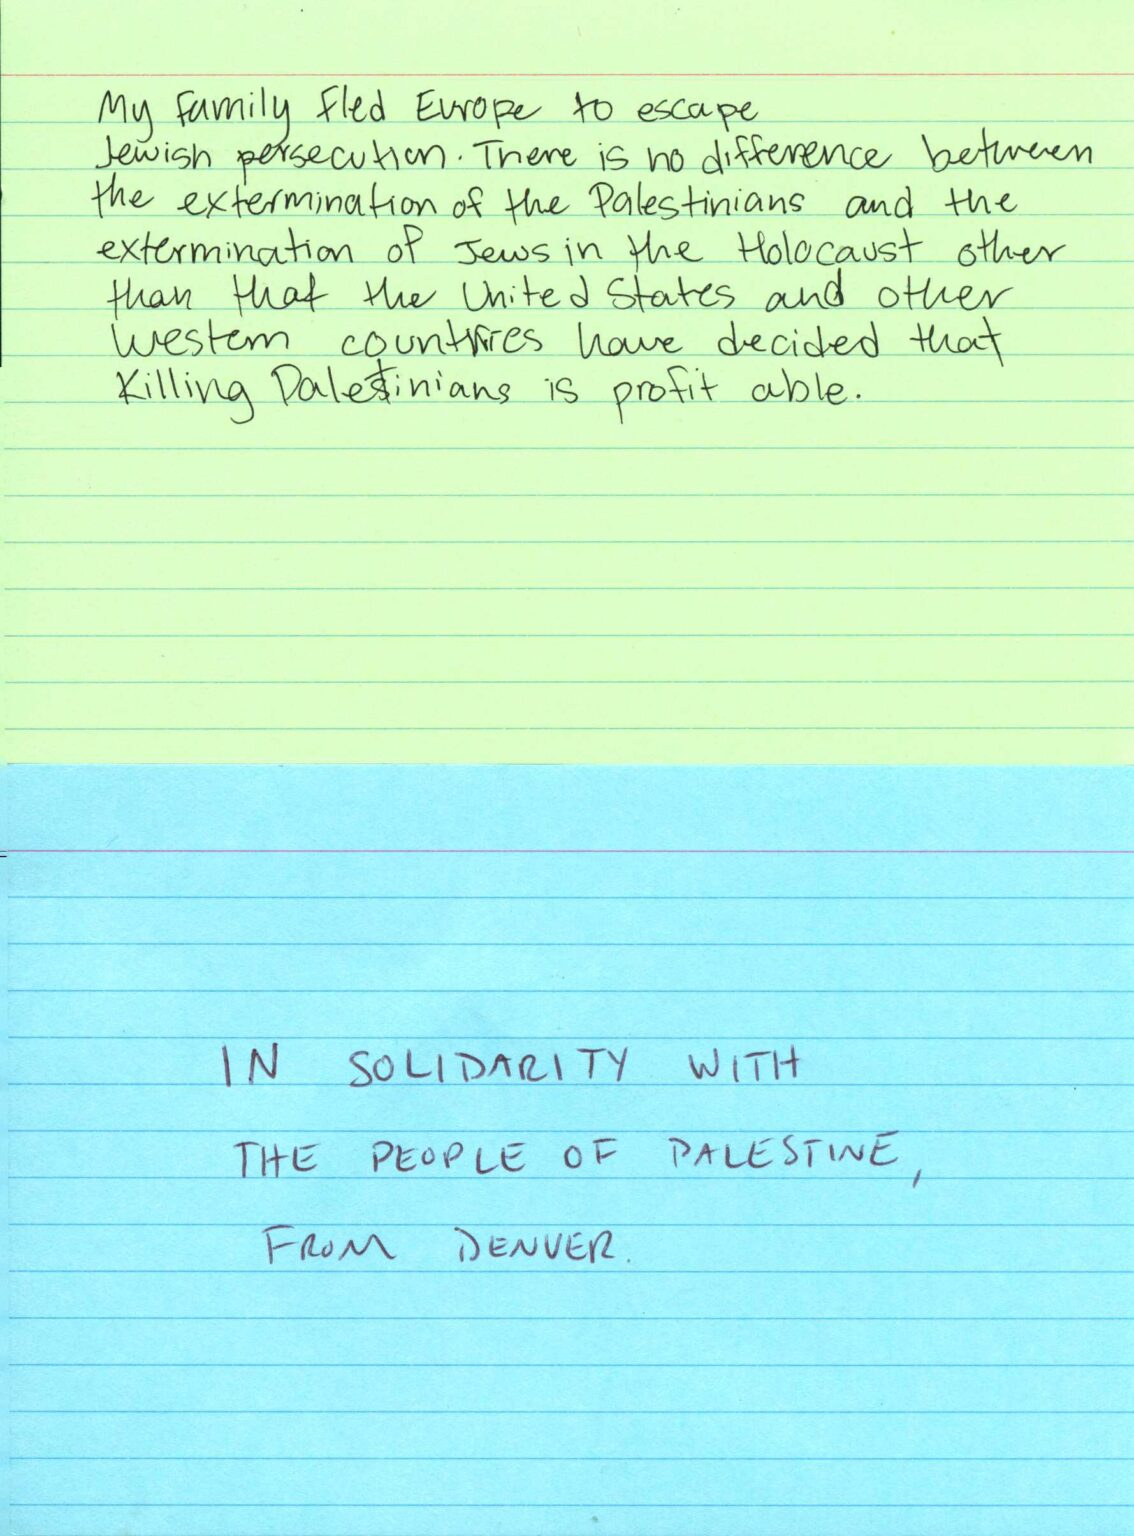 My family fled Europe to escape
Jewish persecution. There is no difference between
the extermination of the Palestinians and the
extermination of Jews in the Holocaust other
than that the United States and other
Western countries have decided that
killing Palestinians is profit able.
IN SOLIDARITY WITH
THE PEOPLE OF PALESTINE,
FROM DENVER.